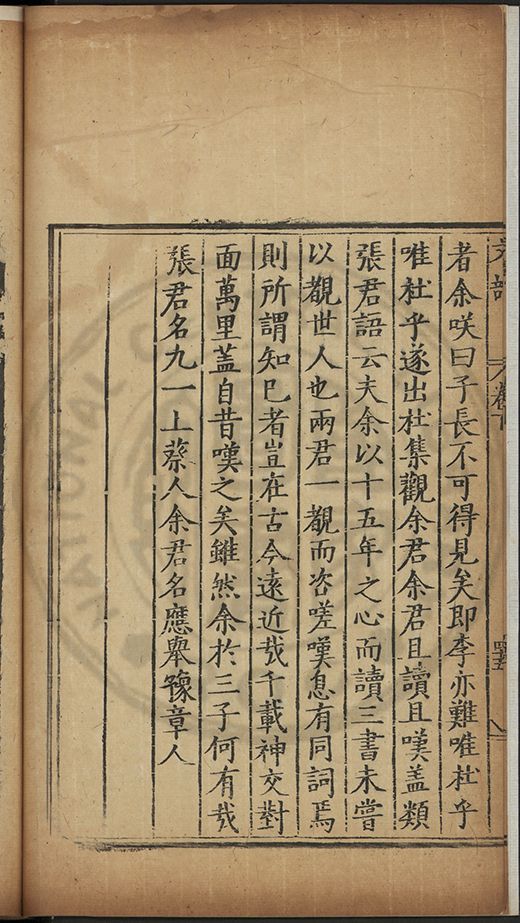 卷下
者余咲曰子長不可得見矣即李亦難唯杜乎
唯杜乎遂出杜集觀余君余君且讀且嘆盖類
張君語云夫余以十五年之心而讀三書未嘗
以觀世人也兩君一覩而咨嗟嘆息有同詞焉
則所謂知巳者豈在古今遠近㢤千載神交對
面萬里盖自昔嘆之矣雖然余於三子何有㢤
張君名九一上蔡人余君名應舉豫章人